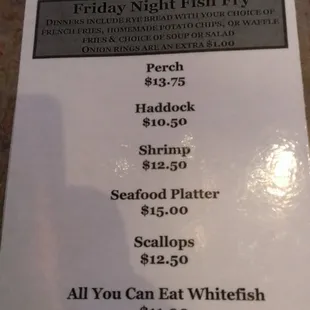 Friday Night Fish Fry
Dinners include rye bread with your choice of
french fries, homemade potato chips, or waffle
fries & choice of soup or salad
Onion rings are an extra $1.00
Perch
$13.75
Haddock
$10.50
Shrimp
$12.50
Seafood Platter
$15.00
Scallops
$12.50
All You Can Eat Whitefish